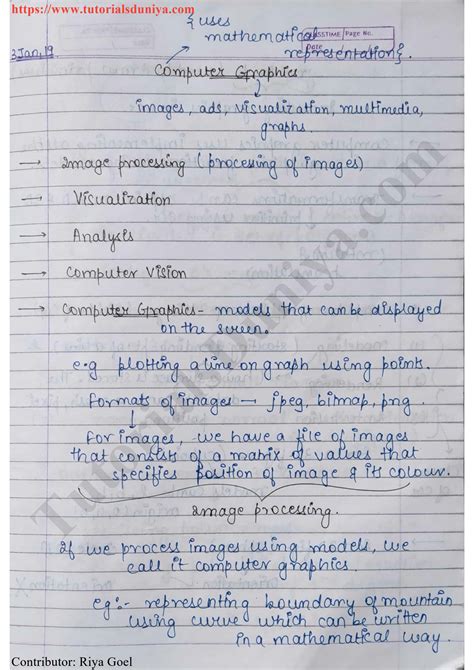 https://www.tutorialsduniya.com
{uses
mathematical
representation}.
Page No.
Date
3Jan,19
Computer Graphics
images, ads, visualization, multimedia,
graphs.
→ Image processing (processing of images)
→ Visualization
→ Analysis
→ Computer Vision
→ Computer Graphics - models that can be displayed
on the screen.
e.g plotting a line on graph using points.
Formats of images → jpeg, bitmap, png.
For images, we have a file of images
that consists of a matrix of values that
specifies position of image & its colour.
Image processing.
If we process images using models, we
call it computer graphics.
eg:- representing boundary of mountain
using curve which can be written
in a mathematical way.
TutorialsDuniya.com
Contributor: Riya Goel